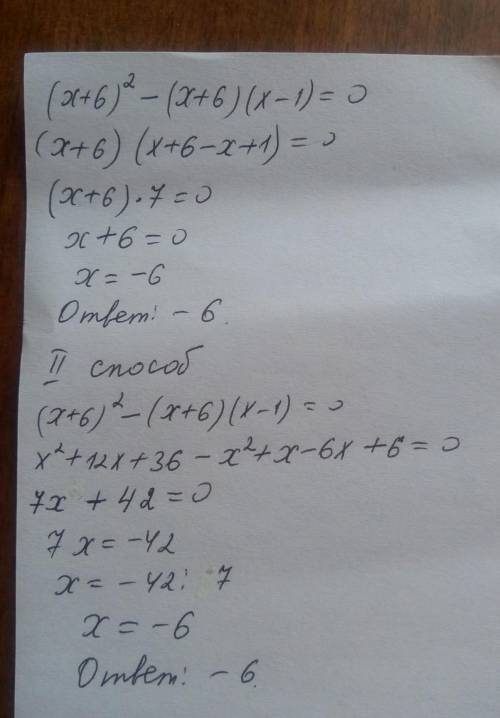 (x+6)² − (x+6)(x−1) = 0
(x+6) (x+6−x+1) = 0
(x+6)·7 = 0
x+6 = 0
x = −6
Ответ: −6.
II способ
(x+6)² − (x+6)(x−1) = 0
x²+12x+36 − x²+x−6x+6 = 0
7x + 42 = 0
7x = −42
x = −42 : 7
x = −6
Ответ: −6.